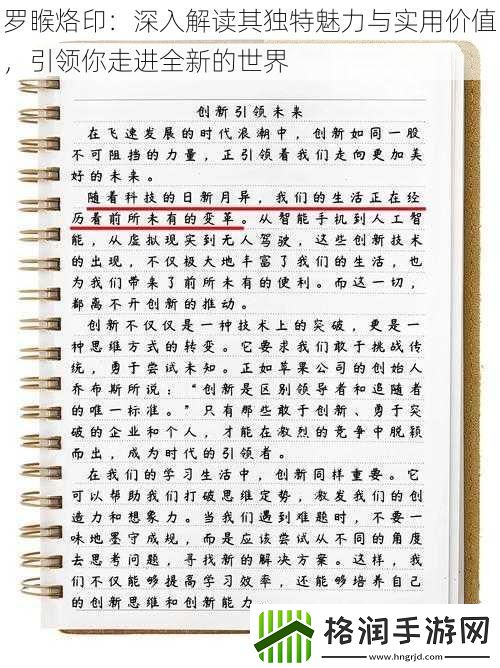 罗睺烙印：深入解读其独特魅力与实用价值
，引领你走进全新的世界
创新引领未来
在飞速发展的时代浪潮中，创新如同一股
不可阻挡的力量，正引领着我们走向更加美
好的未来。
随着科技的日新月异，我们的生活正在经
历着前所未有的变革。从智能手机到人工智
能，从虚拟现实到无人驾驶，这些创新技术
的出现，不仅极大地丰富了我们的生活，也
为我们带来了前所未有的便利。而这一切，
都离不开创新的推动。
创新不仅仅是一种技术上的突破，更是一
种思维方式的转变。它要求我们敢于挑战传
统，勇于尝试未知。正如苹果公司的创始人
乔布斯所说：“创新是区别领导者和追随者
的唯一标准。”只有那些敢于创新、勇于突
破的企业和个人，才能在激烈的竞争中脱颖
而出，成为时代的引领者。
在我们的学习生活中，创新同样重要。它
可以帮助我们打破思维定势，激发我们的创
造力和想象力。当我们遇到难题时，不要一
味地墨守成规，而是应该尝试从不同的角度
去思考问题，寻找新的解决方案。这样，我
们不仅能够提高学习效率，还能够培养自己
的创新思维和创新能力
格润手游网
www.hngrjd.com